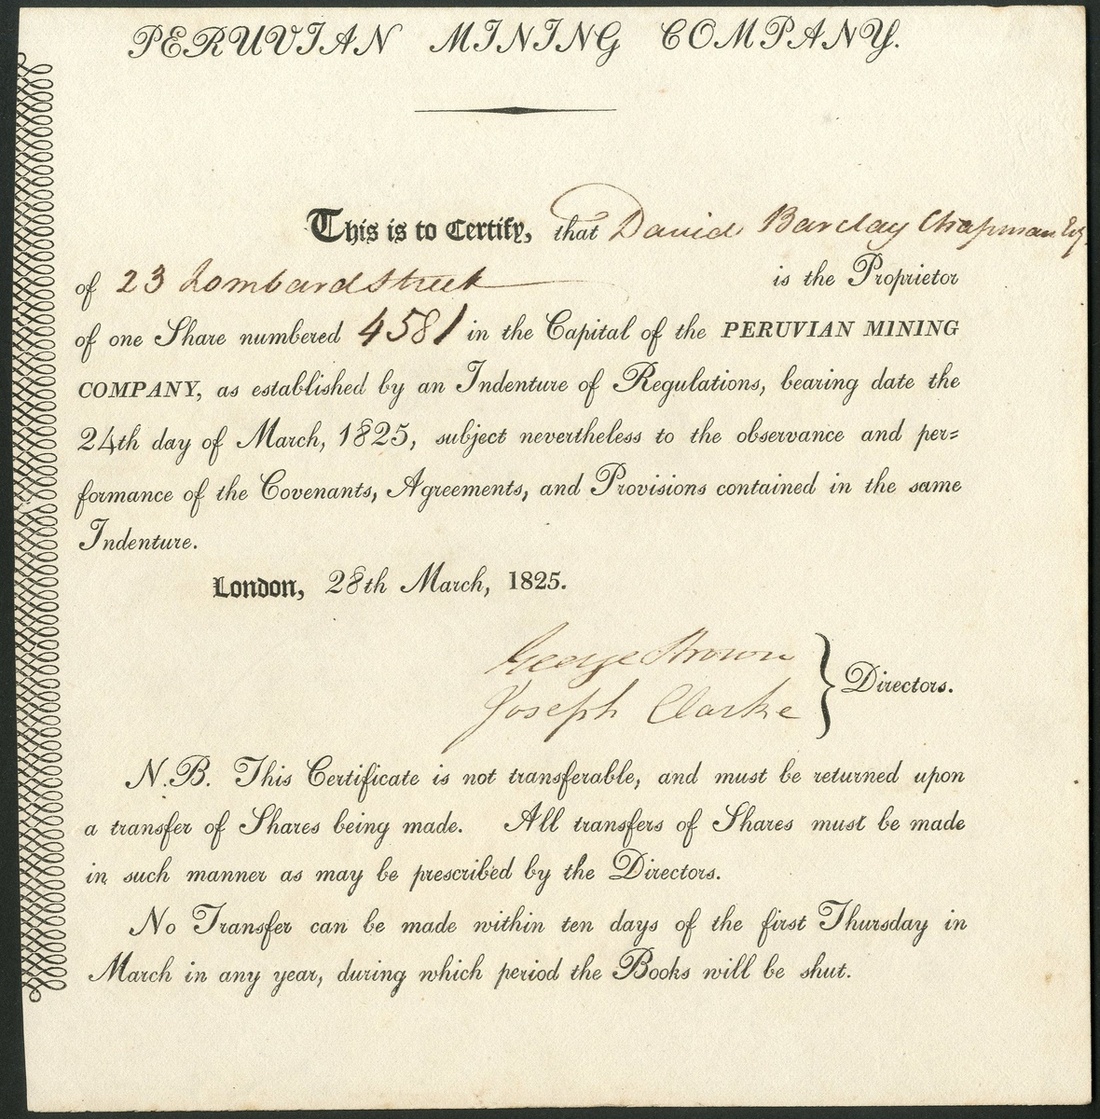 PERUVIAN MINING COMPANY.
This is to Certify, that David Barclay Chapman Esq
of 23 Lombard Street is the Proprietor
of one Share numbered 4581 in the Capital of the PERUVIAN MINING
COMPANY, as established by an Indenture of Regulations, bearing date the
24th day of March, 1825, subject nevertheless to the observance and per=
formance of the Covenants, Agreements, and Provisions contained in the same
Indenture.
London, 28th March, 1825.
George Brown
Joseph Clarke
Directors.
N.B. This Certificate is not transferable, and must be returned upon
a transfer of Shares being made. All transfers of Shares must be made
in such manner as may be prescribed by the Directors.
No Transfer can be made within ten days of the first Thursday in
March in any year, during which period the Books will be shut.